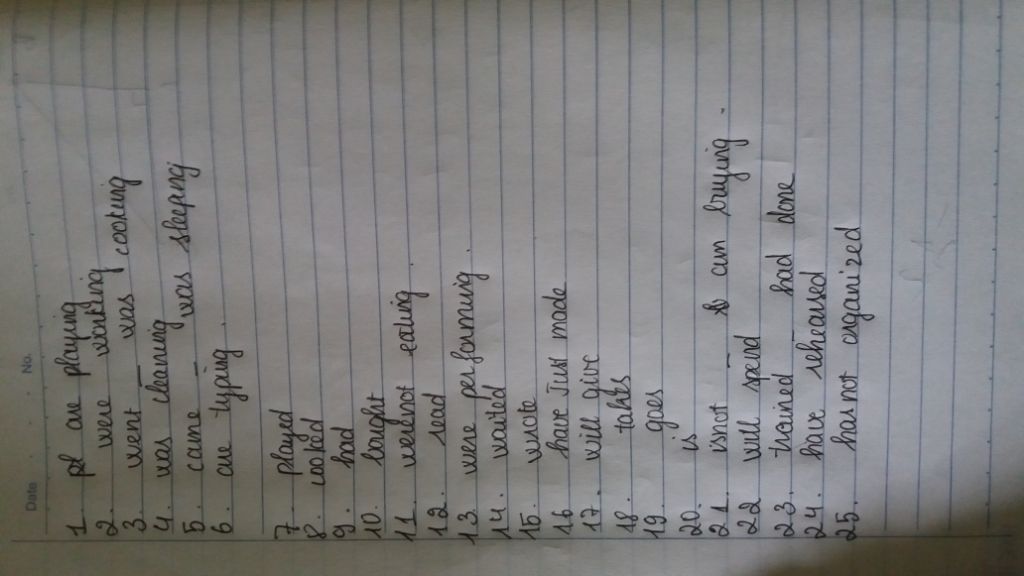 Date No.
1. pl are playing
2. were working
3. went – was cooking
4. was cleaning
5. came – was sleeping
6. are typing
7. played
8. waked
9. had
10. bought
11. werenot eating
12. read
13. were performing.
14. waited
15. wrote
16 have Just made
17. will give
18. takes
19. goes
20. is
21. isnot am buying.
22 will spend
23. trained had done
24. have rehearsed
25. hasnot organized